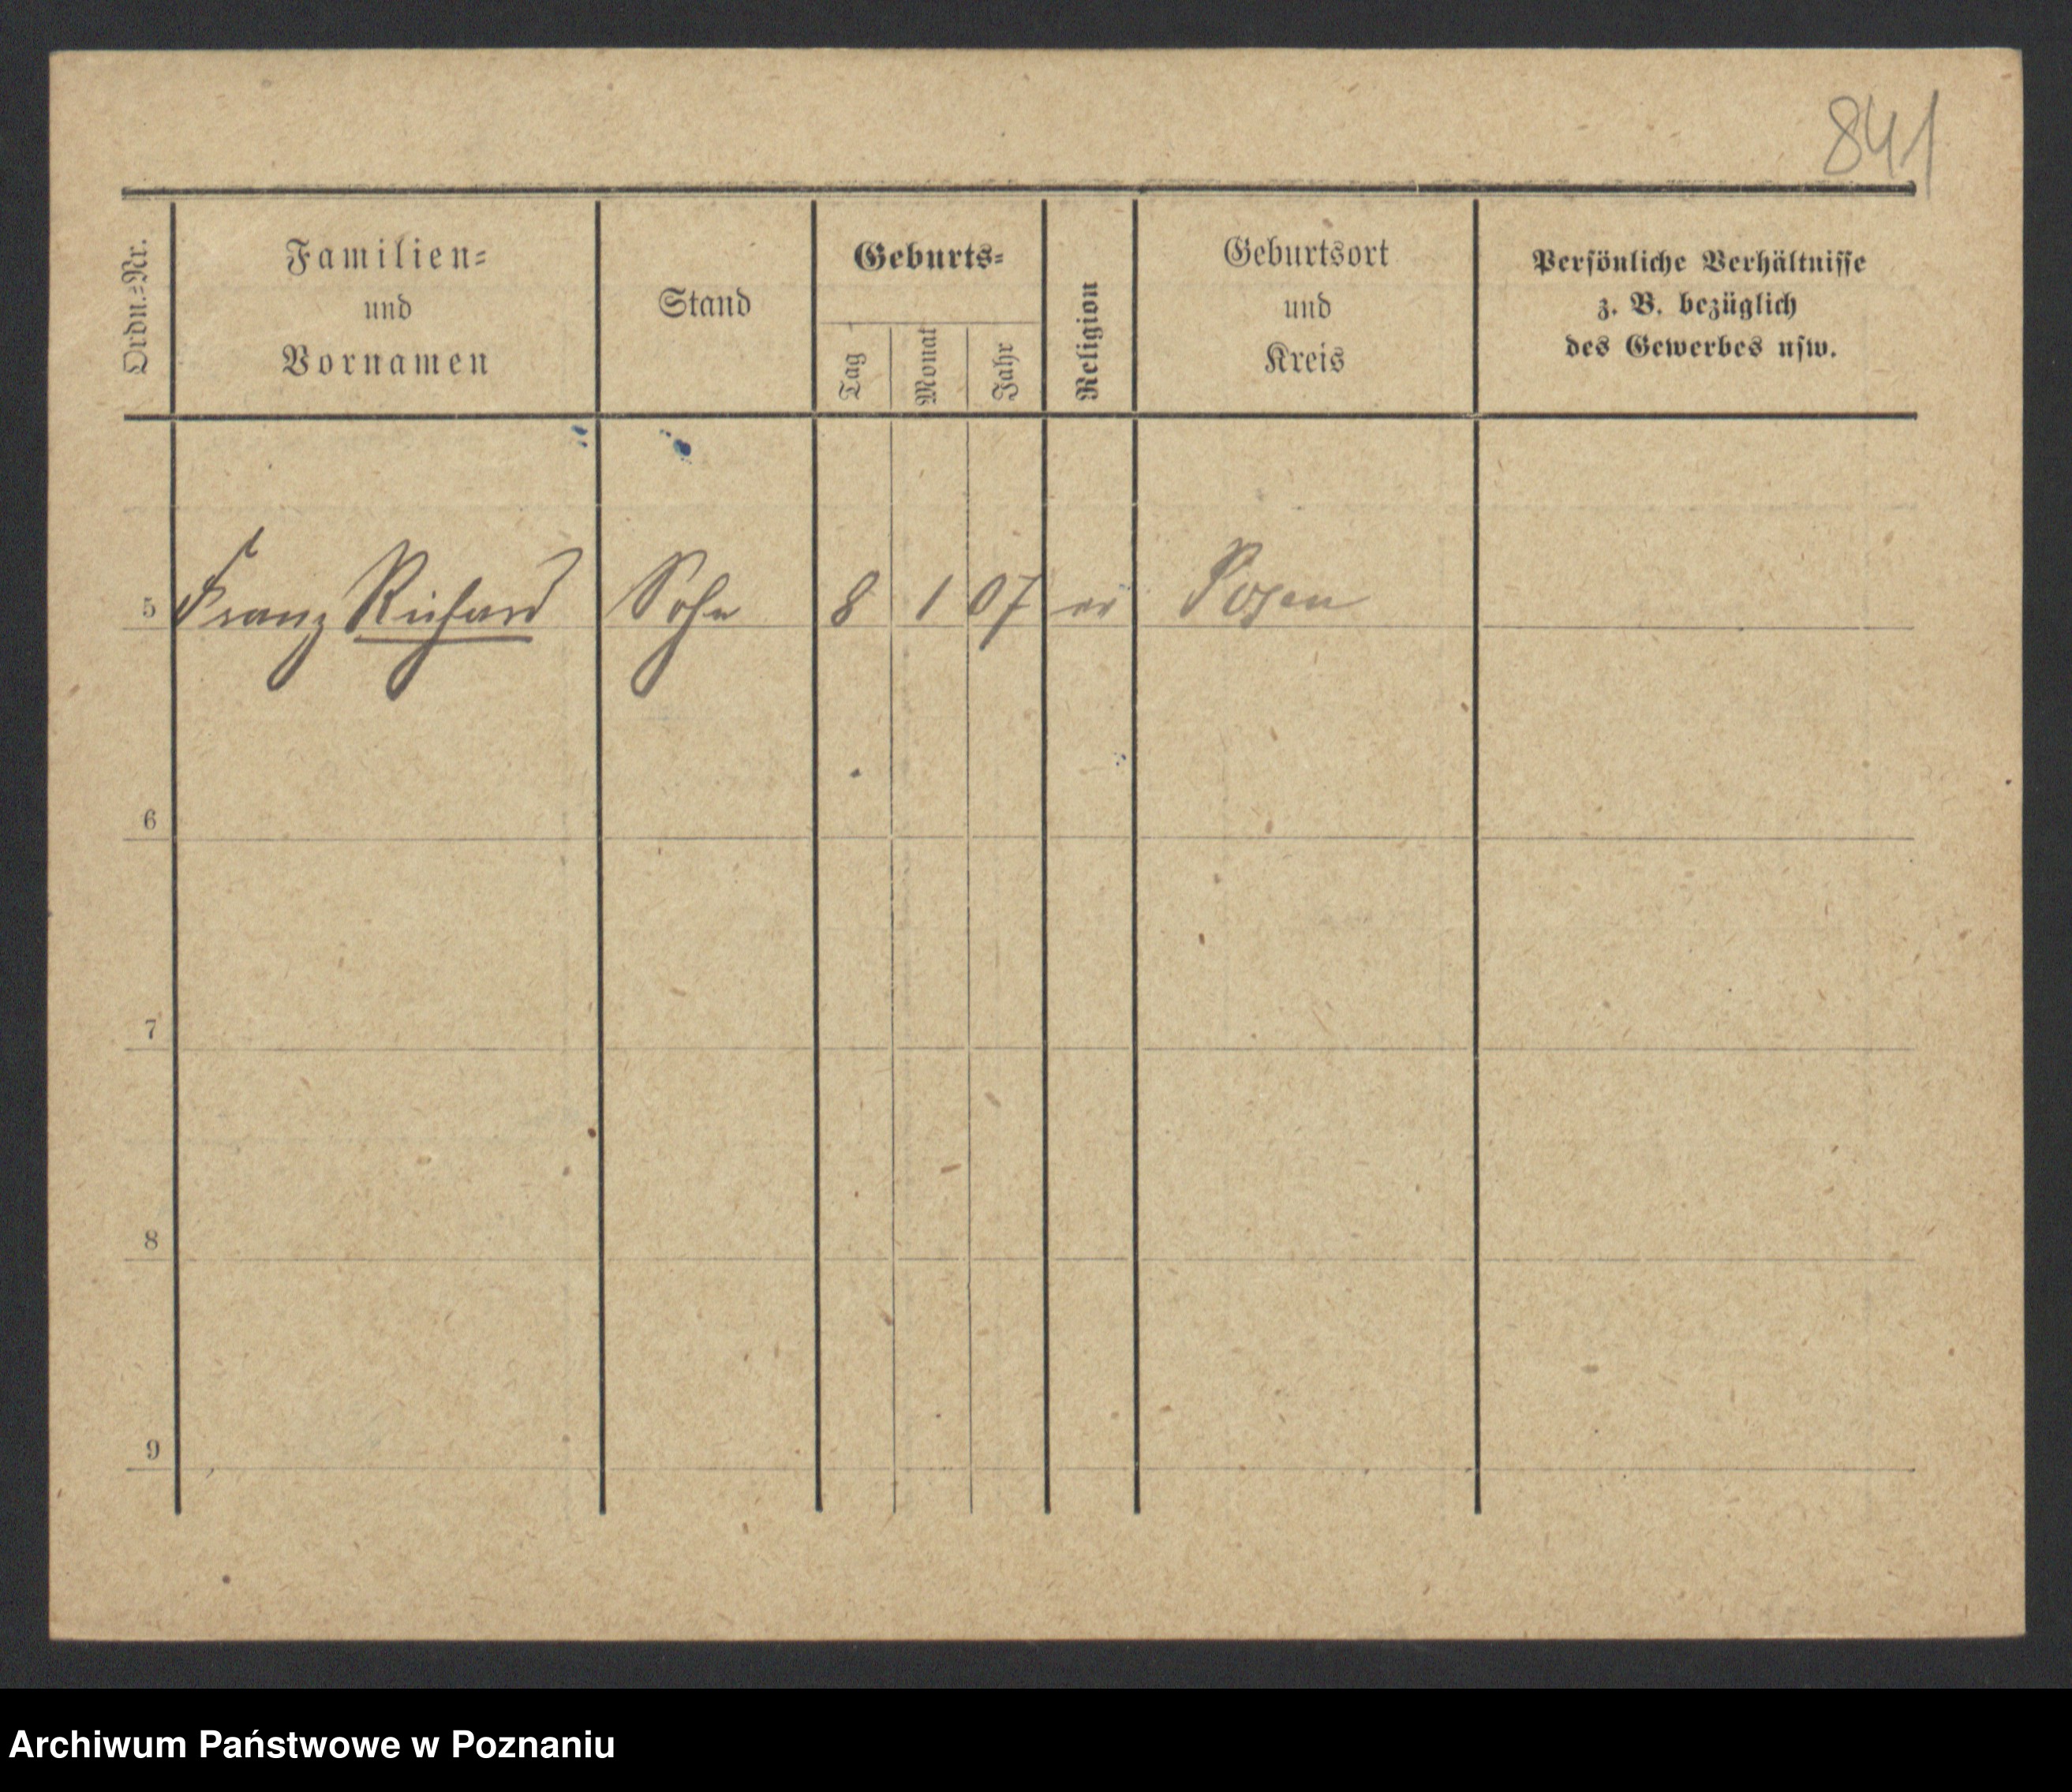 841
Ordn.-Nr.
Familien-
und
Vornamen
Stand
Geburts-
Tag
Monat
Jahr
Religion
Geburtsort
und
Kreis
Persönliche Verhältnisse
z. B. bezüglich
des Gewerbes usw.
5 Franz Richard Sohn 8 1 07 Posen
6
7
8
9
Archiwum Państwowe w Poznaniu